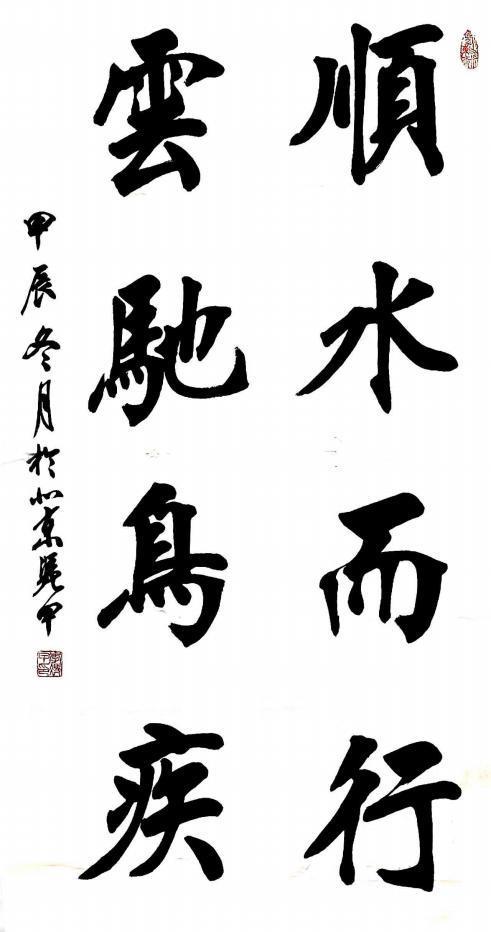 順水而行
雲馳鳥疾
甲辰冬月於北京